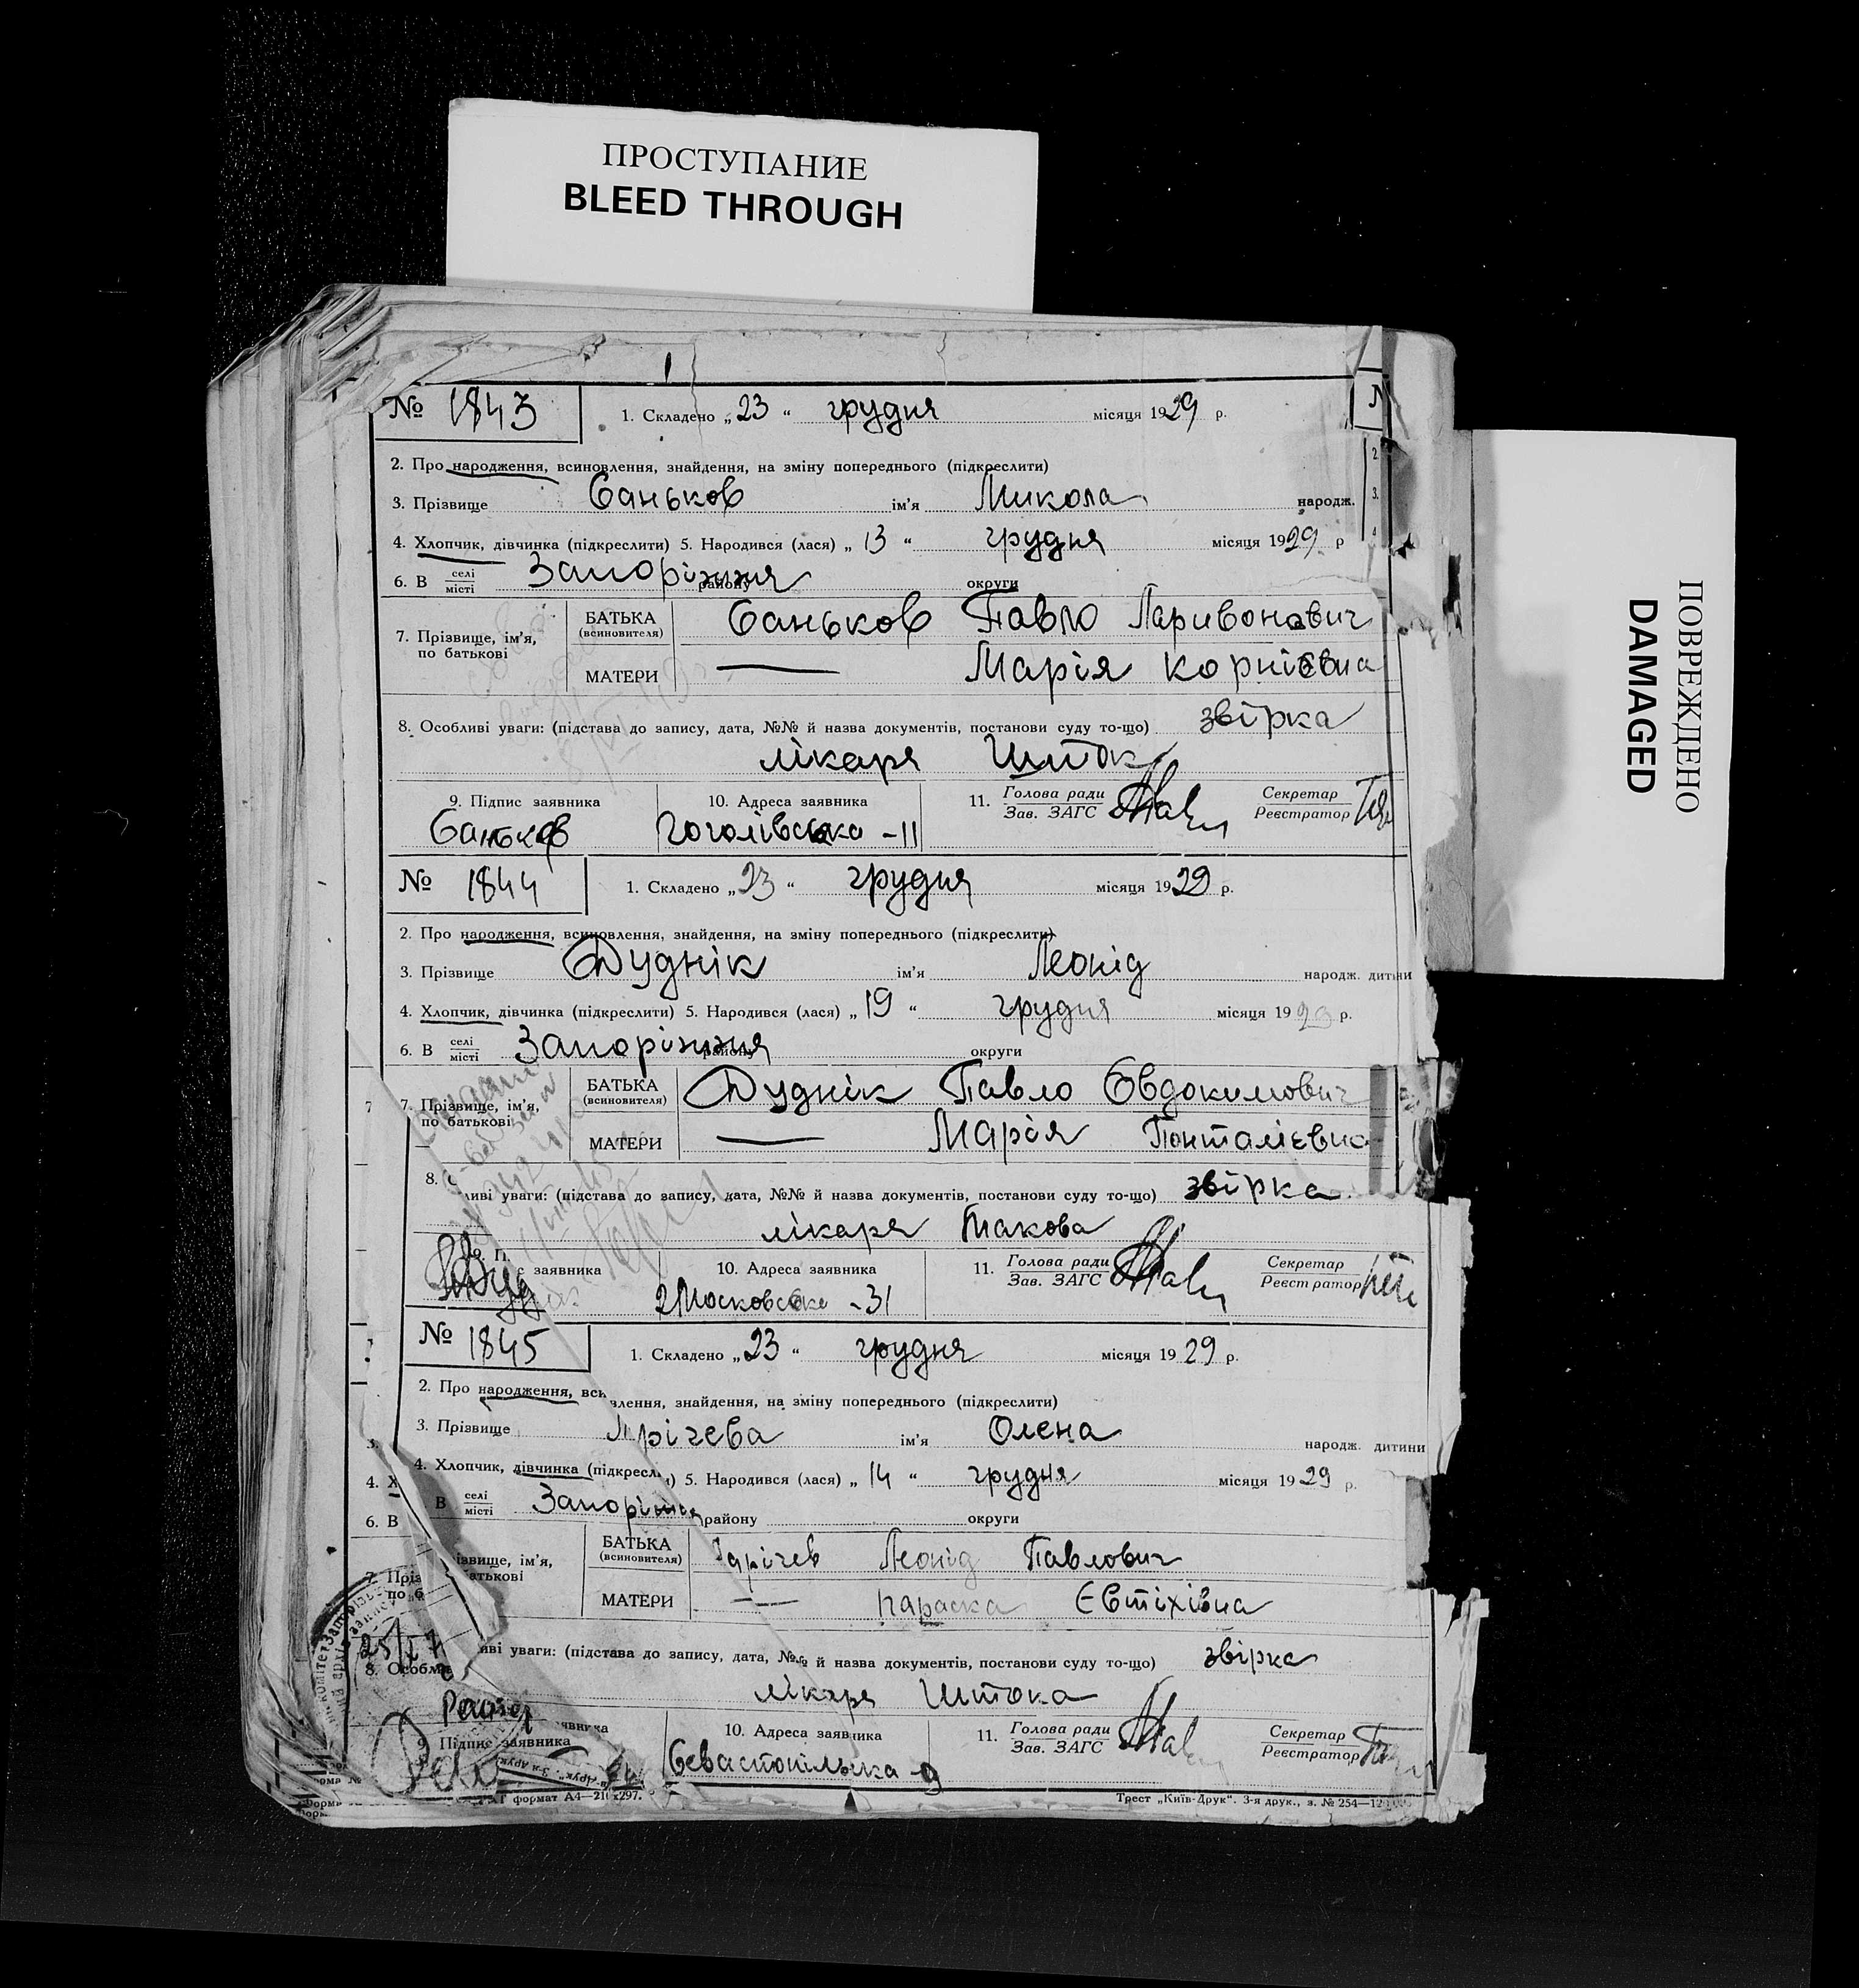 ПРОСТУПАНИЕ
BLEED THROUGH
ПОВРЕЖДЕНО
DAMAGED
№ 1843 1. Складено „23“ грудня місяця 1929 р.
2. Про народження, всиновлення, знайдення, на зміну попереднього (підкреслити)
3. Прізвище Саньков ім’я Микола народж.
4. Хлопчик, дівчинка (підкреслити) 5. Народився (лася) „13“ грудня місяця 1929 р
6. В селі місті Запоріжжя району округи
7. Прізвище, ім’я, по батькові
БАТЬКА (всиновителя) Саньков Павло Ларивонович
МАТЕРИ — Марія Корніївна
8. Особливі уваги: (підстава до запису, дата, №№ й назва документів, постанови суду то-що) звірка
лікаря Шток
9. Підпис заявника 10. Адреса заявника 11. Голова ради Зав. ЗАГС Секретар Реєстратор
Саньков Гоголівська -11
№ 1844 1. Складено „23“ грудня місяця 1929 р.
2. Про народження, всиновлення, знайдення, на зміну попереднього (підкреслити)
3. Прізвище Дуднік ім’я Леонід народж. дитини
4. Хлопчик, дівчинка (підкреслити) 5. Народився (лася) „19“ грудня місяця 19 р.
6. В селі місті Запоріжжя району округи
7. Прізвище, ім’я, по батькові
БАТЬКА (всиновителя) Дуднік Павло Овдокимович
МАТЕРИ — Марія Понталієвна
8. ливі уваги: (підстава до запису, дата, №№ й назва документів, постанови суду то-що) звірка
лікаря Такова
9. П с заявника 10. Адреса заявника 11. Голова ради Зав. ЗАГС Секретар Реєстратор
Московська -31
№ 1845 1. Складено „23“ грудня місяця 1929 р.
2. Про народження, вси влення, знайдення, на зміну попереднього (підкреслити)
3. Прізвище річева ім’я Олена народж. дитини
4. Хлопчик, дівчинка (підкресл 5. Народився (лася) „14“ грудня місяця 1929 р.
В селі місті Запоріжжя району округи
ізвище, ім’я, батькові
БАТЬКА (всиновителя) річев Леонід Павлович
МАТЕРИ — Параска Євтіхівна
иві уваги: (підстава до запису, дата, №№ й назва документів, постанови суду то-що) звірка
лікаря Штока
9. Підпис заявника 10. Адреса заявника 11. Голова ради Зав. ЗАГС Секретар Реєстратор
Севастопільска -9
формат А4—210х297. Трест „Київ-Друк“. 3-я друк., з. № 254—12